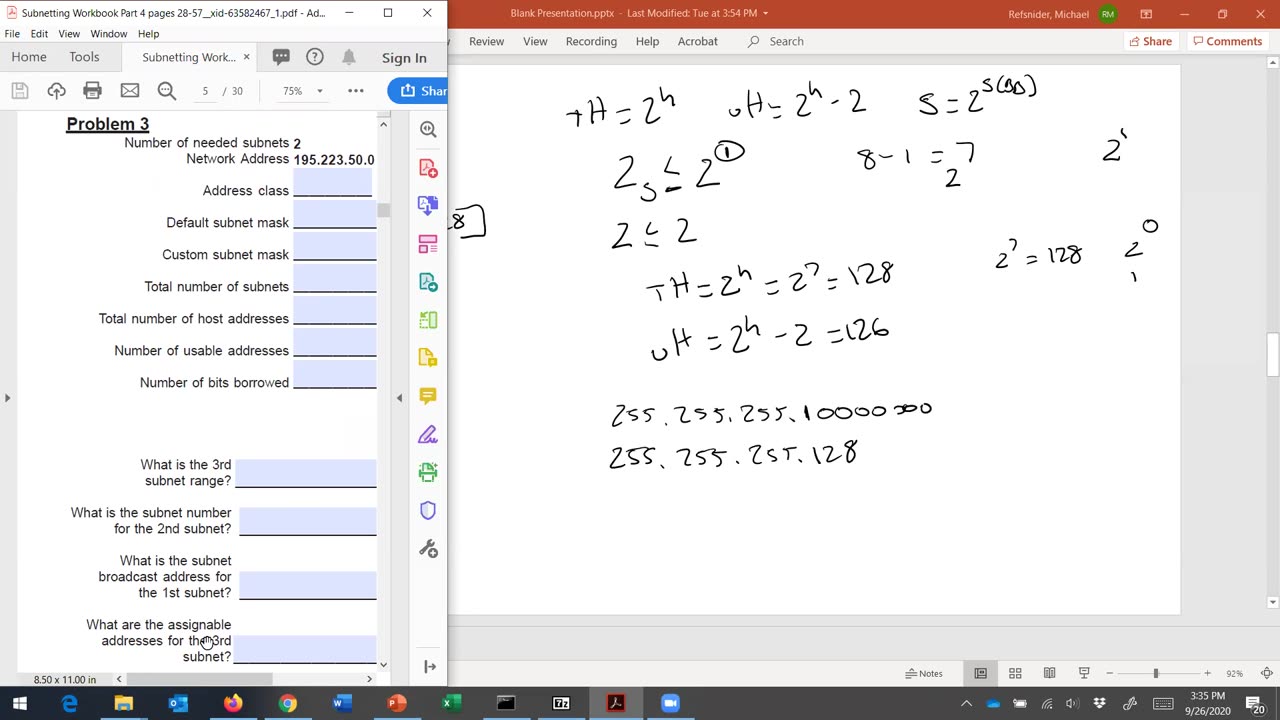 Subnetting Workbook Part 4 pages 28-57__xid-63582467_1.pdf - Ad...
Blank Presentation.pptx - Last Modified: Tue at 3:54 PM
Refsnider, Michael
RM
File Edit View Window Help
Review View Recording Help Acrobat Search
Share Comments
Home Tools Subnetting Work... × Sign In
5 / 30 75% Shar
Problem 3
Number of needed subnets 2
Network Address 195.223.50.0
Address class
Default subnet mask
Custom subnet mask
Total number of subnets
Total number of host addresses
Number of usable addresses
Number of bits borrowed
What is the 3rd
subnet range?
What is the subnet number
for the 2nd subnet?
What is the subnet
broadcast address for
the 1st subnet?
What are the assignable
addresses for the 3rd
subnet?
8.50 x 11.00 in
TH = 2^h uH = 2^h - 2 S = 2^S(BB)
2 s ≤ 2^1 8 - 1 = 7 2^1
2
28
2 ≤ 2
2^7 = 128 2^0
1
TH = 2^h = 2^7 = 128
uH = 2^h - 2 = 126
255.255.255.10000000
255.255.255.128
Notes 92%
3:35 PM
9/26/2020
20